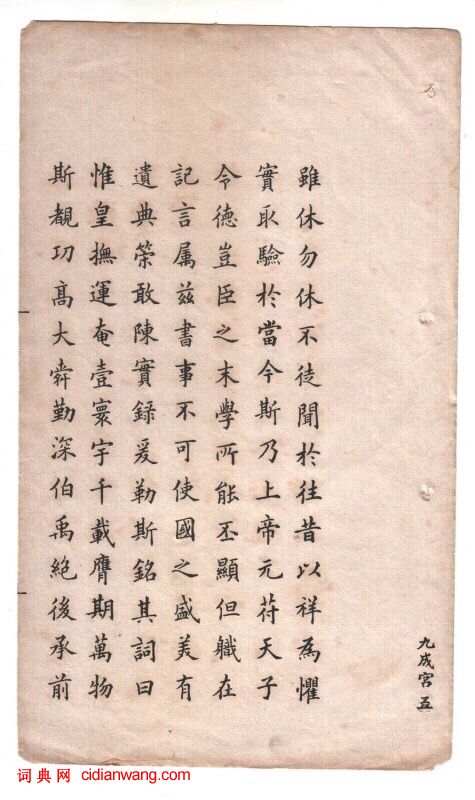 雖休勿休不徒聞於往昔以祥為懼
實取驗於當今斯乃上帝元符天子
令德豈臣之末學所能丕顯但職在
記言属茲書事不可使國之盛美有
遺典策敢陳實錄爰勒斯銘其詞曰
惟皇撫運奄壹寰宇千載膺期萬物
斯覩功高大舜勤深伯禹絕後承前
九成宮 五
词典网 cidianwang.com